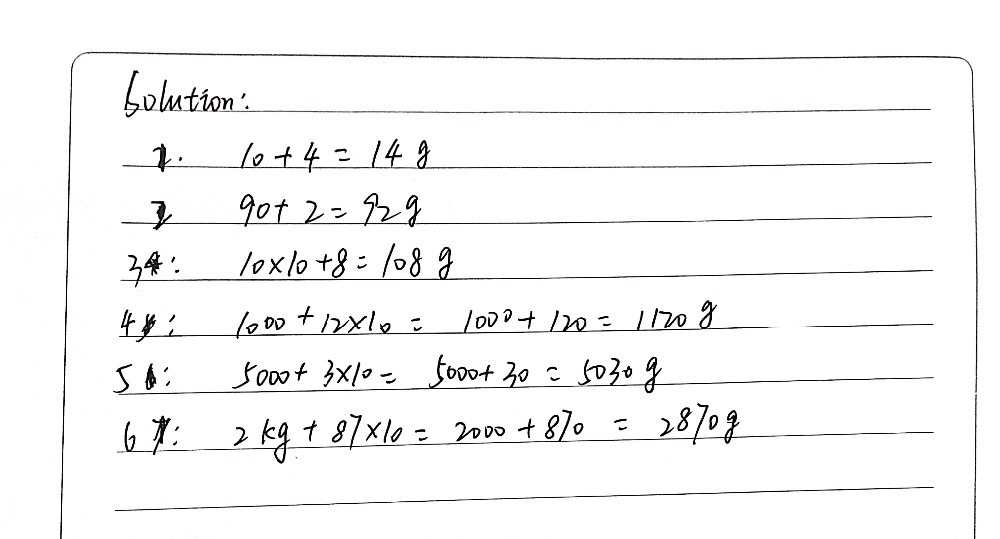 Solution:
1. 10 + 4 = 14 g
2 90 + 2 = 92 g
3: 10×10 + 8 = 108 g
4: 1000 + 12×10 = 1000 + 120 = 1120 g
5: 5000 + 3×10 = 5000 + 30 = 5030 g
6: 2 kg + 87×10 = 2000 + 870 = 2870 g